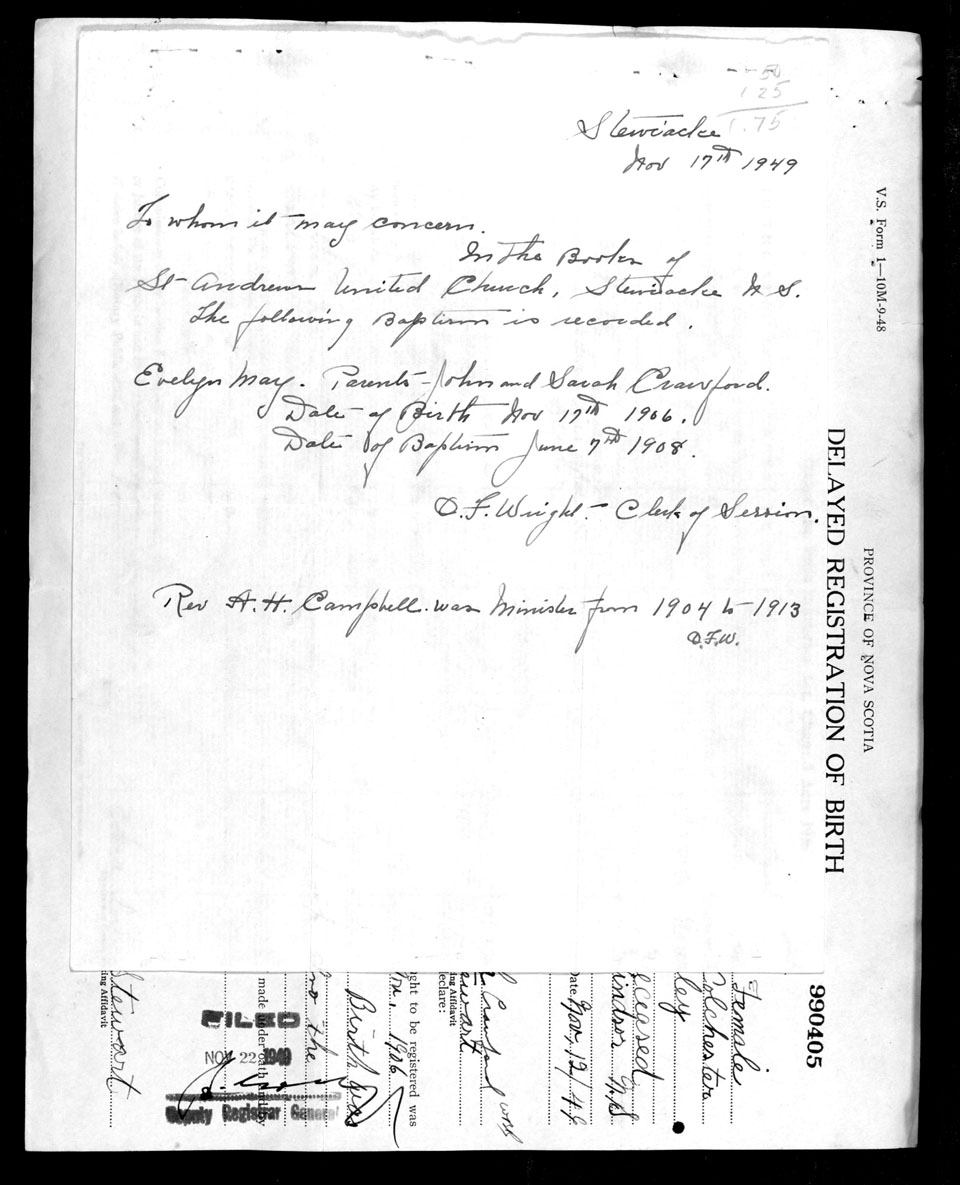 50
1 25
1.75
Stewiacke
Nov 17th 1949
To whom it may concern.
In the Books of
St Andrews United Church, Stewiacke N S.
The following Baptism is recorded.
Evelyn May. Parents - John and Sarah Crawford.
Date of Birth Nov 17th 1906.
Date of Baptism June 7th 1908.
D.F. Wright. - Clerk of Session.
Rev A. H. Campbell. was Minister from 1904 to 1913
D.F.W.
V.S. Form 1—10M-9-48
PROVINCE OF NOVA SCOTIA
DELAYED REGISTRATION OF BIRTH
990405
Female
Colchester
ley
eceased
indsor N.S
Date Nov. 12/48
l Crawford
ewart
ing Affidavit
eclare:
ght to be registered was
1906
Birth was
no the
made under oath and by
FILED
NOV 22 1949
Deputy Registrar General
Stewart
ing Affidavit